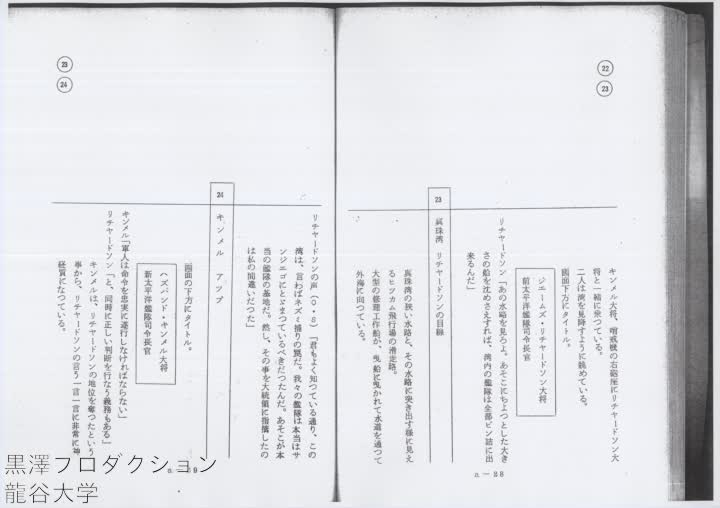 22
23
キンメル大将、哨戒機の右砲座にリチャードソン大
将と一緒に乗つている。
二人は湾を見降すように眺めている。
画面下方にタイトル。
ジェームズ・リチャードソン大将
前太平洋艦隊司令長官
リチャードソン「あの水路を見ろよ。あそこにちよつとした大き
さの船を沈めさえすれば、湾内の艦隊は全部ビン詰に出
来るんだ」
23
真珠湾 リチャードソンの目線
真珠湾の狭い水路と、その水路に突き出す様に見え
るヒツカム飛行場の滑走路。
大型の修理工作船が、曳船に曳かれて水道を通つて
外海に向つている。
a—28
23
24
リチャードソンの声（O・S）「君もよく知つている通り、この
湾は、言わばネズミ捕りの罠だ。我々の艦隊は本当はサ
ンジエゴにとどまつているべきだつたんだ。あそこが本
当の艦隊の基地だ。然し、その事を大統領に指摘したの
は私の間違いだつた」
24
キンメル アツプ
画面の下方にタイトル。
ハズバンド・キンメル大将
新太平洋艦隊司令長官
キンメル「軍人は命令を忠実に遂行しなければならない」
リチャードソン「と、同時に正しい判断を行なう義務もある」
キンメルは、リチャードソンの地位を奪つたという
事から、リチャードソンの言う一言一言に非常に神
経質になつている。
a—29
黒澤プロダクション
龍谷大学